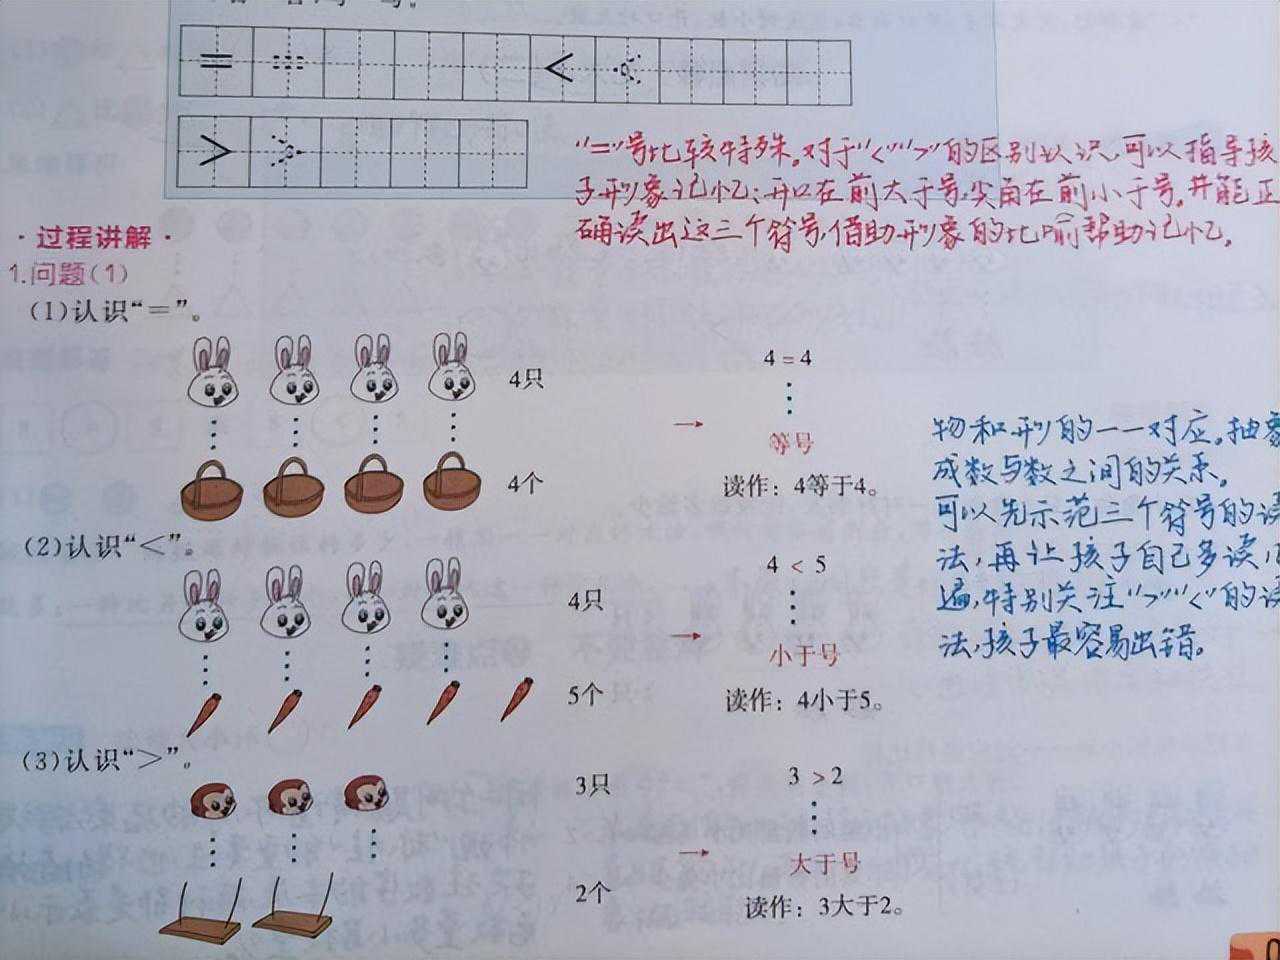 = <
>
“=”号比较特殊。对于“<”“>”的区别认识,可以指导孩
子形象记忆:开口在前大于号,尖角在前小于号。并能正
确读出这三个符号,借助形象的比喻帮助记忆。
·过程讲解·
1.问题(1)
(1)认识“=”。
4只
4个
4=4
等号
读作:4等于4。
物和形的一一对应。抽象
成数与数之间的关系。
可以先示范三个符号的读
法,再让孩子自己多读几
遍,特别关注“>”“<”的读
法,孩子最容易出错。
(2)认识“<”。
4只
5个
4 < 5
小于号
读作:4小于5。
(3)认识“>”。
3只
2个
3 >2
大于号
读作:3大于2。